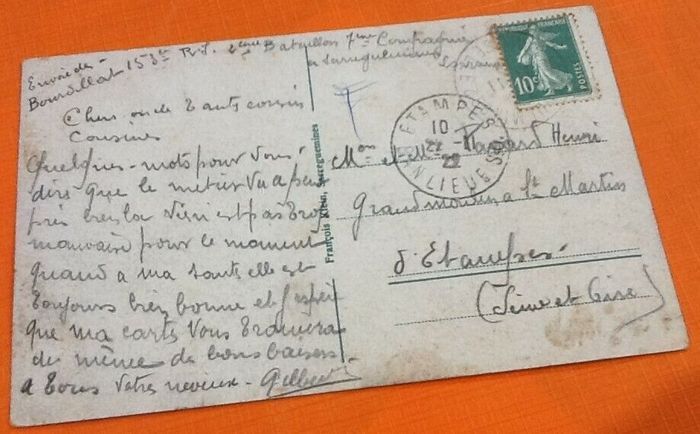 Envoi de
Bourdillat 153e R.I. 2ème Bataillon 7ème Compagnie
a Sarreguemines
Lorraine
Chers oncle tante cousin
Cousines
Quelques mots pour vous
dire que le métier va a peu
près la vie n'est pas trop
mauvaise pour le moment
quand a ma santé elle est
toujours très bonne et j'espère
que ma carte vous trouvera
de même de bons baisers
a tous votre neveux Gilbert
François Klein, Sarreguemines
F
REPUBLIQUE FRANÇAISE
10c
POSTES
ETAMPES
10
22 -11
22
Henri
Grand St Martin
d'Etampes
(Seine et Oise)